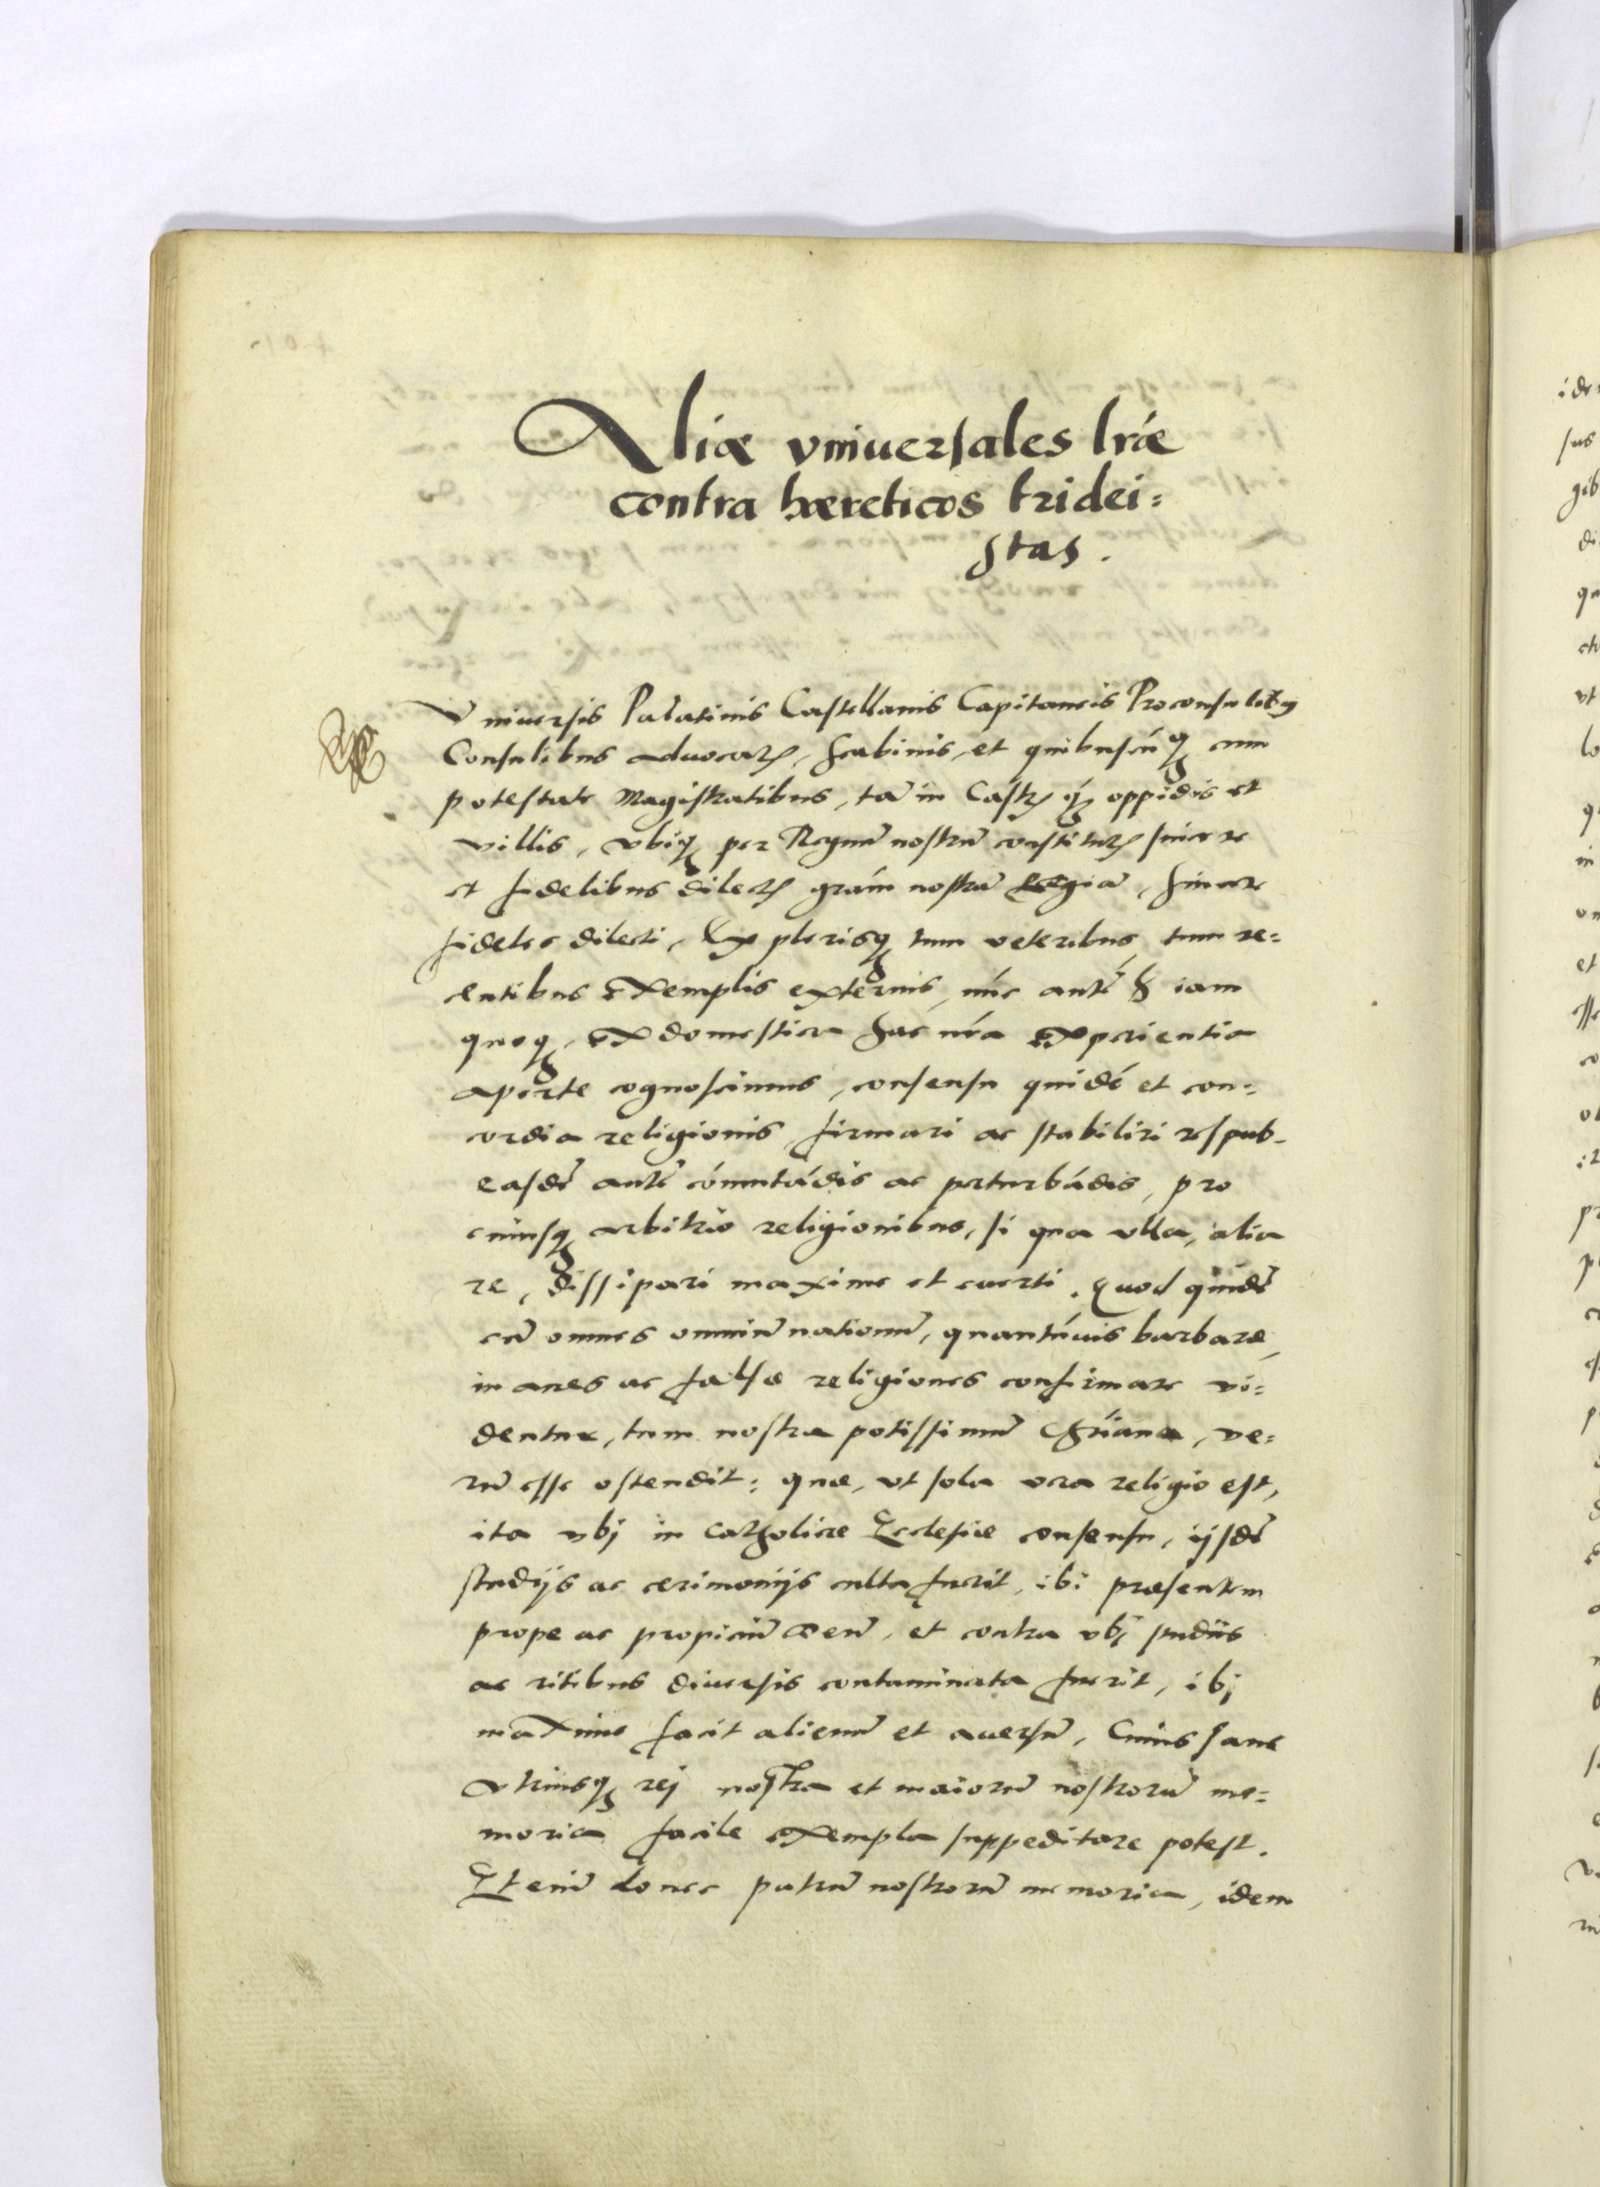 Aliæ vniuersales lr̃æ
contra hæreticos tridei=
stas.
Vniuersis Palatinis Castellanis Capitaneis Proconsulibus
Consulibus aduocatis, scabinis, et quibuscũq3 cum
potestate Magistratibus, tã in Castris q̃3 oppidis et
villis, vbiq3 per Regnũ nostrũ constitutis sincere
et fidelibus dilectis grãm nostrã Regiã, sincere
fideles dilecti, Ex plerisq3 tum veteribus, tum re=
centibus exemplis externis, nũc autẽ iam
quoq3, ex domestica hac nr̃a experientia
aperte cognoscimus, consensu quidẽ et con=
cordia religionis firmari ac stabiliri respub.
easdẽ autẽ cõmutãdis ac perturbãdis, pro
cuiusq3 arbitrio religionibus, si qua vlla, alia
re, dissipari maxime et euerti. Quod quidẽ
cũ omnes omniũ nationũ, quantũuis barbaræ,
inanes ac falsæ religiones confirmare vi=
dentur, tum nostra potissimũ Chr̃iana, ve=
rũ esse ostendit: quæ, vt sola vera religio est,
ita vbj in Catholicæ Ecclesiæ consensu, ijsdẽ
studijs ac cerimonijs culta fuerit, ibi præsentem
prope ac propiciũ Deũ, et contra vbj studiis
ac ritibus diuersis contaminata fuerit, ibj
maxime facit alienũ et auersũ, Cuius sane
vtriusq3 rej nostra et maiorũ nostrorũ me=
moria facile exempla suppeditare potest.
Etenĩ donec patrũ nostrorũ memoria, idem